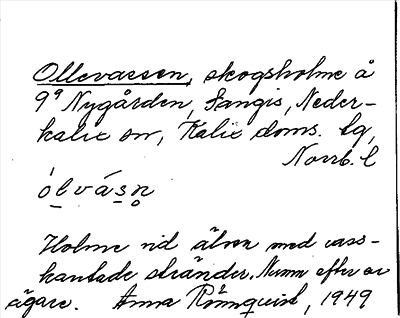 Ollevassen, skogsholme å
9⁹ Nygården, Sangis, Neder-
kalix sn, Kalix doms. lg,
Norrb. l
ólvásn̥
Holme vid älven med vass-
kantade stränder. Namn efter en
ägare. Anna Rönnquist, 1949